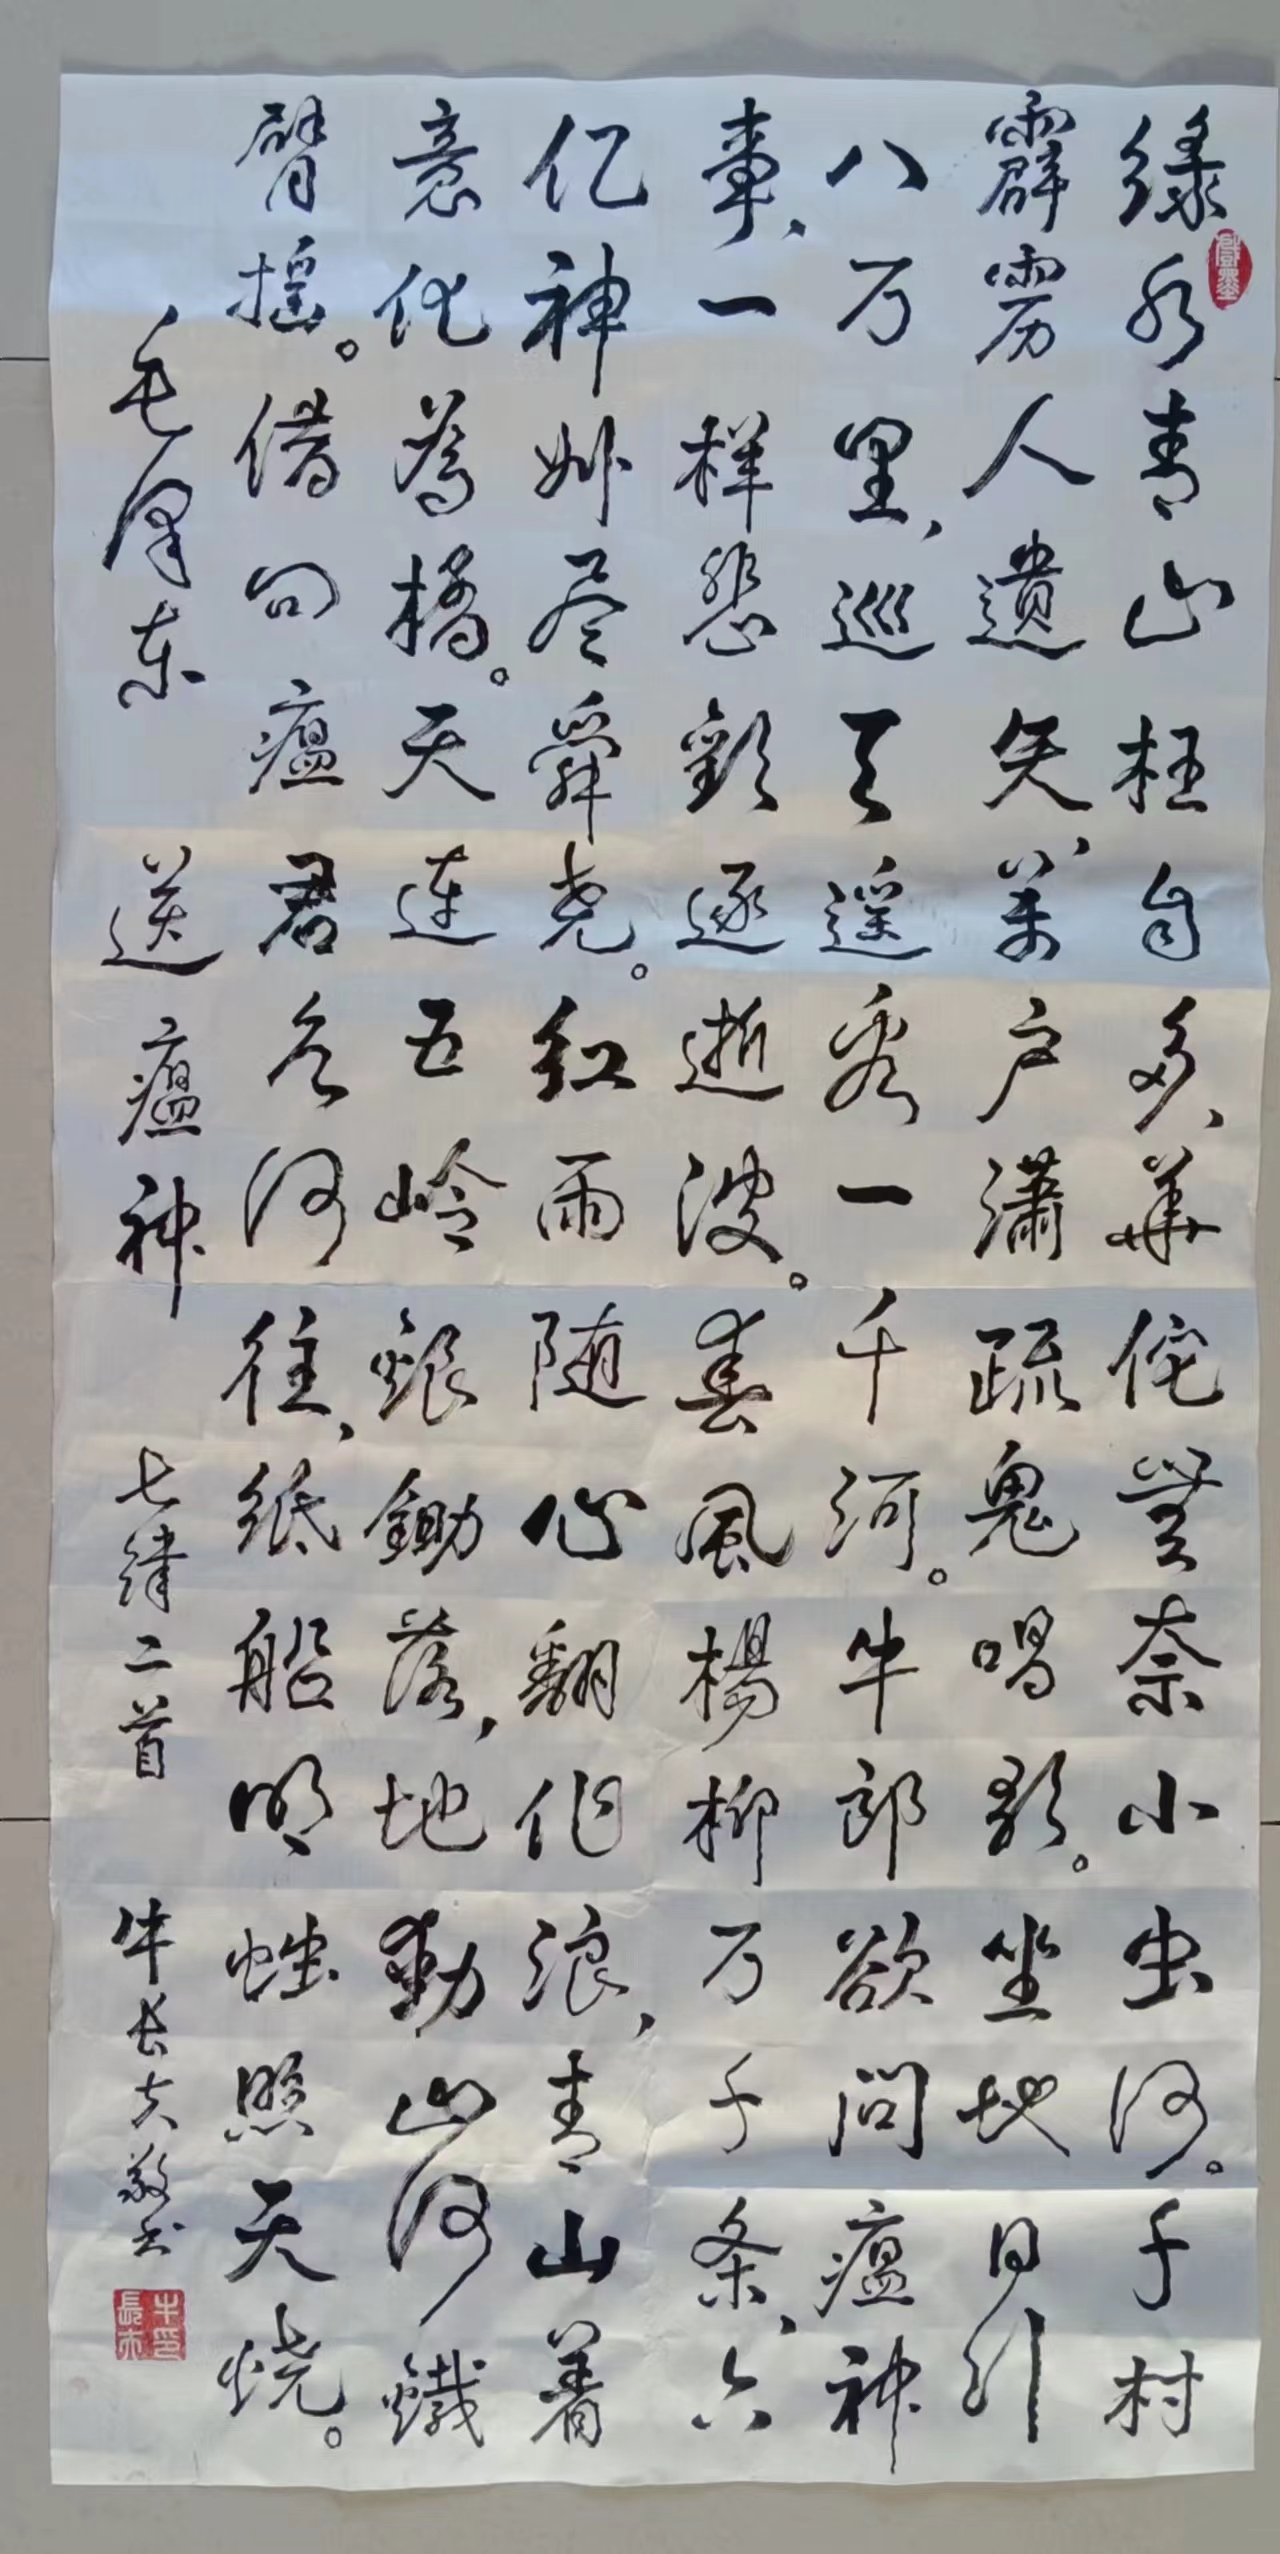 绿水青山枉自多、華佗無奈小虫何。千村
霹雳人遗矢、萬户瀟疏鬼唱歌。坐地日行
八万里、巡天遥看一千河。牛郎欲问瘟神
事、一样悲歡逐逝波。春風楊柳万千条、六
亿神州尽舜尧。红雨随心翻作浪，青山着
意化為橋。天连五岭銀鋤落，地動山河鐵
臂摇。借问瘟君欲何往，纸船明烛照天烧。
毛泽东 送瘟神 七律二首 牛长敬书